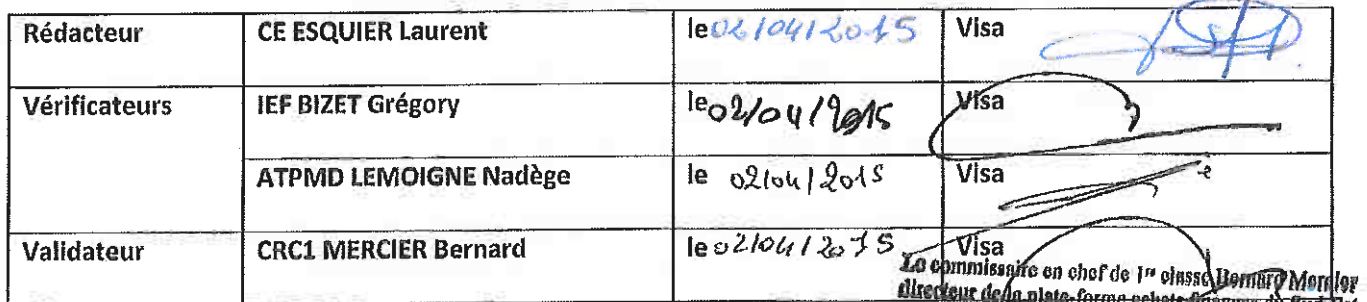 Rédacteur CE ESQUIER Laurent le 02/04/2015 Visa
Vérificateurs IEF BIZET Grégory le 02/04/2015 Visa
ATPMD LEMOIGNE Nadège le 02/04/2015 Visa
Validateur CRC1 MERCIER Bernard le 02/04/2015 Visa
Le commissaire en chef de 1re classe Bernard Mercier
directeur de la plate-forme achats finances